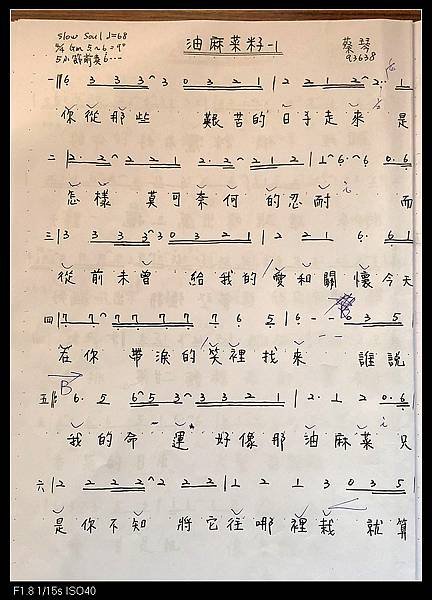 Slow Soul ♩=68
油麻菜籽-1
蔡琴
4/4 Gm 5~6=9°
93638
5小節前奏6---
一 ‖ 6 3 3 3⌃3 0 3 2 1 | 2 2 1 2⌃2· 1
你從那些 艱苦的日子走來 是
二 | 2· 2⌃2 2 1 2· 2⌃2 1 2 | 1⌃6·⌃6 0·6
怎樣 莫可奈何 的忍耐 而
三 | 3 3 3 3⌃3 0 3 2 1 | 2 2 1 6 6 1
從前未曾 給我的愛和關懷今天
四 | 7 7⌃7 7 7 7 7 6 5 | 6 - - 6 3 5
在你 帶淚的笑裡找來 誰說
B
五 ‖ 6· 5 6⌃5 3⌃3 3 2 1 | 2· 1 2 0·6
我的命一運 好像那油麻菜只
六 | 2 2 2 2⌃2 2 2 | 1 2 1 3 0 3 5
是你不知 將它往哪裡栽 就算
F1.8 1/15s ISO40